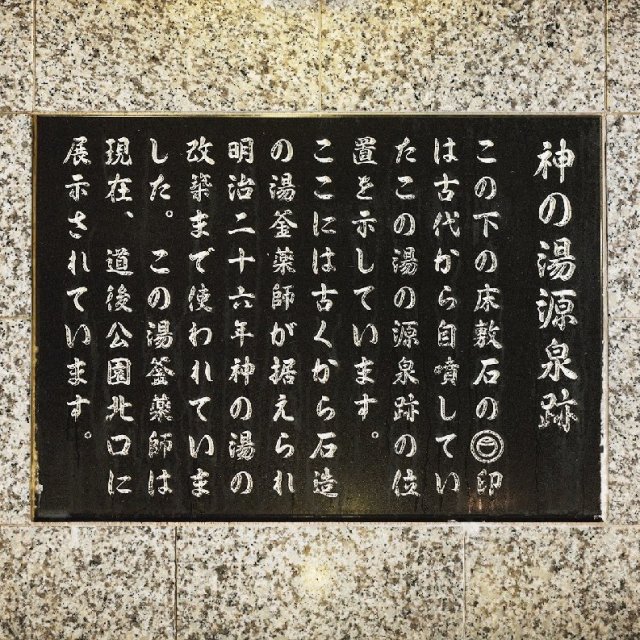 神の湯源泉跡
この下の床敷石の◎印
は古代から自噴してい
たこの湯の源泉跡の位
置を示しています。
ここには古くから石造
の湯釜薬師が据えられ
明治二十六年神の湯の
改築まで使われていま
した。この湯釜薬師は
現在、道後公園北口に
展示されています。